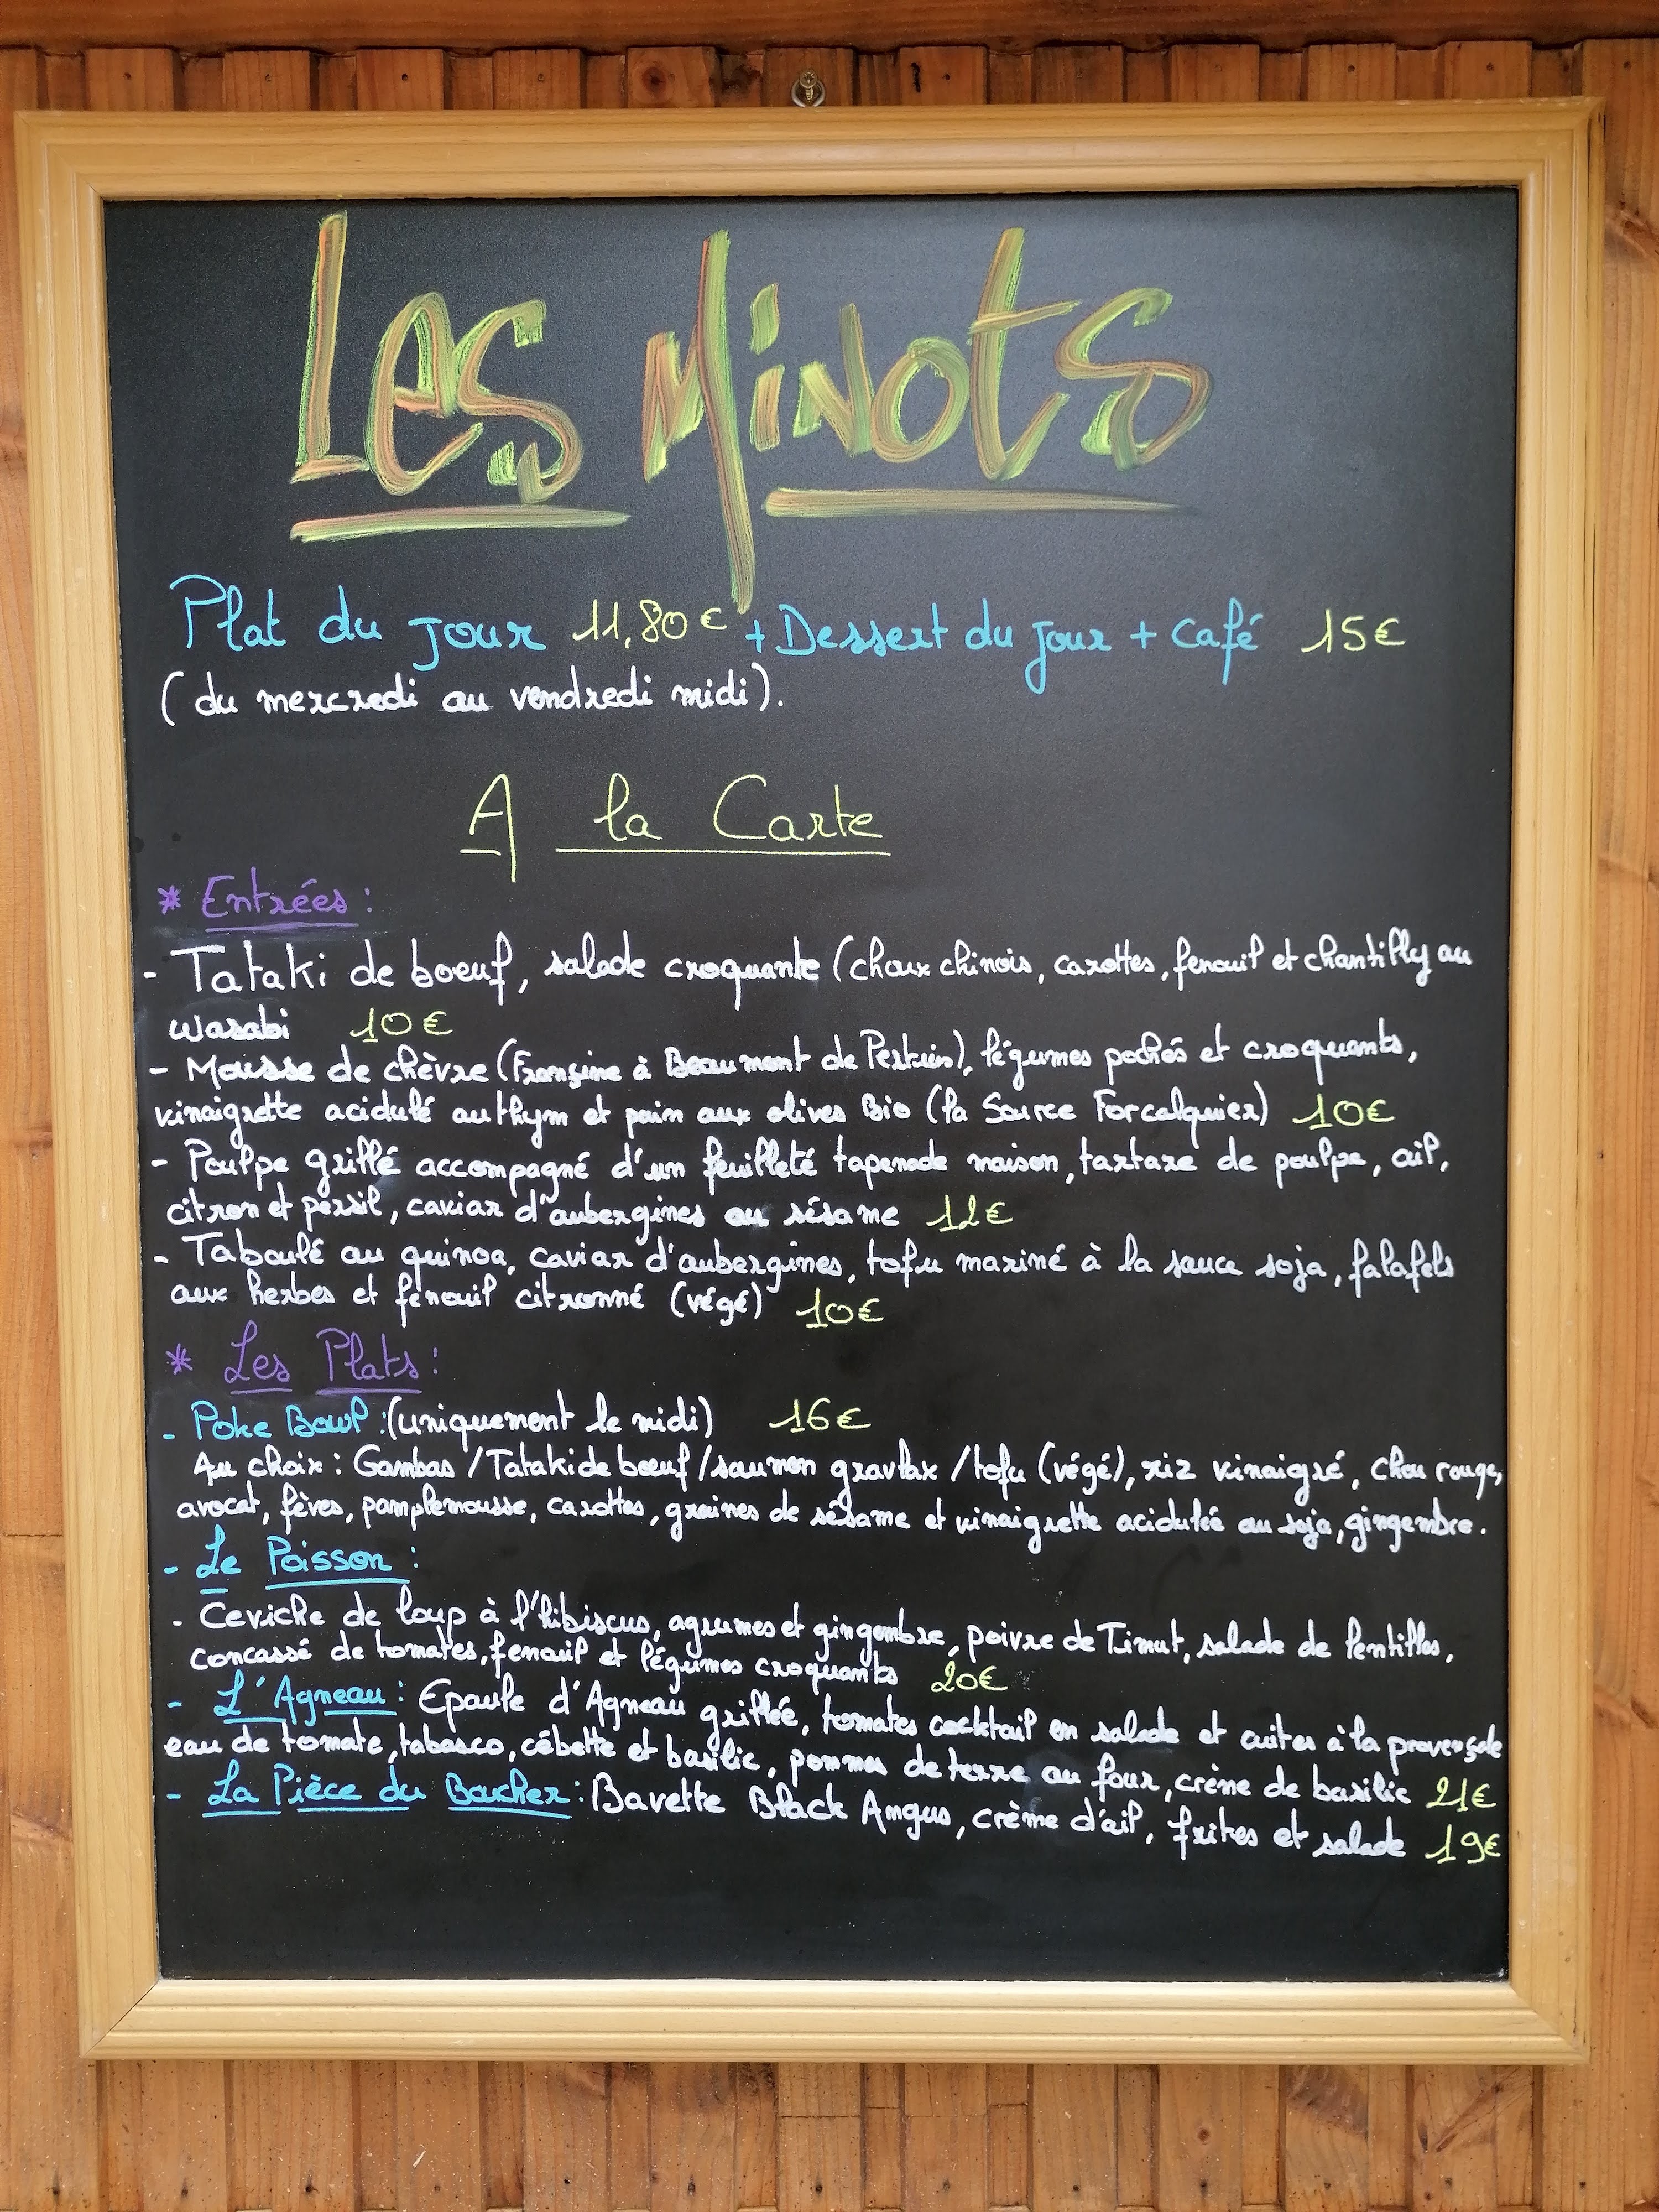 Les Minots
Plat du jour 11,80€ + Dessert du jour + café 15€
(du mercredi au vendredi midi).
A la Carte
* Entrées :
- Tataki de boeuf, salade croquante (choux chinois, carottes, fenouil et chantilly au
wasabi 10€
- Mousse de chèvre (Françine à Beaumont de Pertuis), légumes pochés et croquants,
vinaigrette acidulé au thym et pain aux olives Bio (la Source Forcalquier) 10€
- Poulpe grillé accompagné d'un feuilleté tapenade maison, tartare de poulpe, ail,
citron et persil, caviar d'aubergines au sésame 12€
- Taboulé au quinoa, caviar d'aubergines, tofu mariné à la sauce soja, falafels
aux herbes et fenouil citronné (végé) 10€
* Les Plats :
- Poke Bowl : (uniquement le midi) 16€
Au choix : Gambas / Tataki de boeuf / saumon gravlax / tofu (végé), riz vinaigré, chou rouge,
avocat, fèves, pamplemousse, carottes, graines de sésame et vinaigrette acidulée au soja, gingembre.
- Le Poisson :
- Ceviche de loup à l'hibiscus, agrumes et gingembre, poivre de Timut, salade de lentilles,
concassé de tomates, fenouil et légumes croquants 20€
- L'Agneau : Epaule d'Agneau grillée, tomates cocktail en salade et cuites à la provençale
eau de tomate, tabasco, cébette et basilic, pommes de terre au four, crème de basilic 21€
- La Pièce du Boucher : Bavette Black Angus, crème d'ail, frites et salade 19€